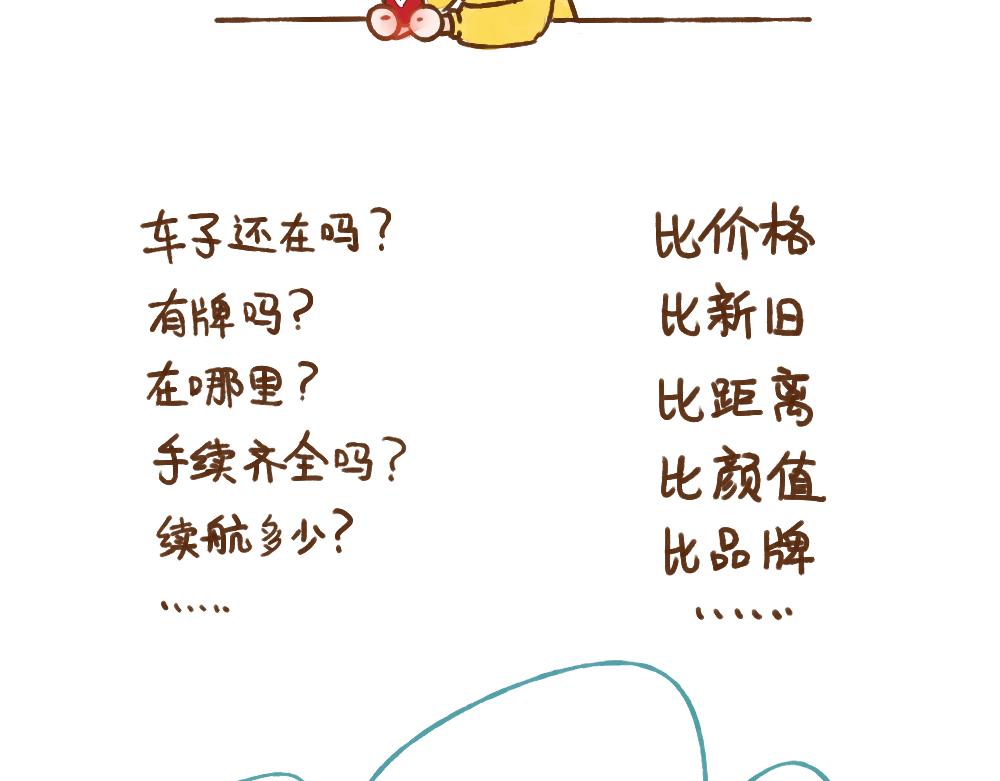 车子还在吗?
有牌吗?
在哪里?
手续齐全吗?
续航多少?
……
比价格
比新旧
比距离
比颜值
比品牌
……